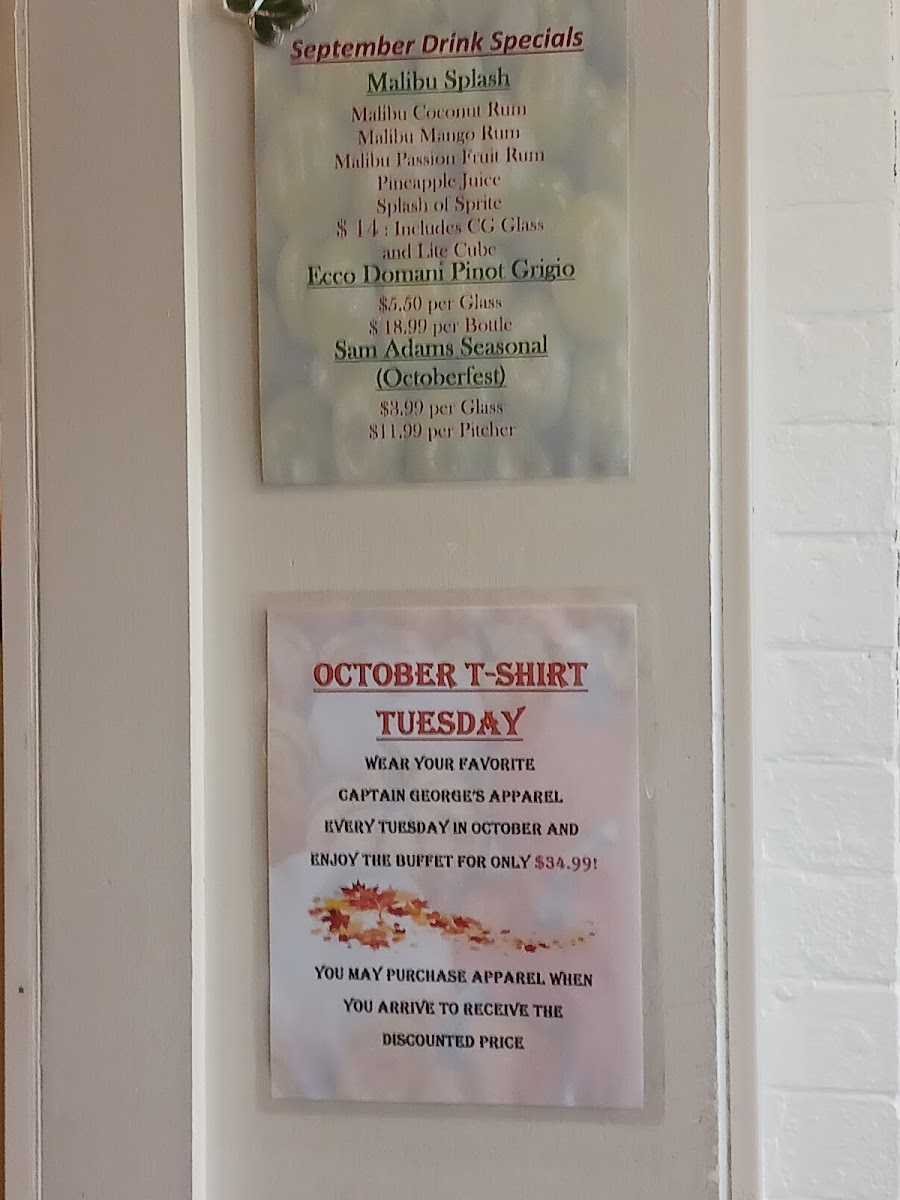 September Drink Specials
Malibu Splash
Malibu Coconut Rum
Malibu Mango Rum
Malibu Passion Fruit Rum
Pineapple Juice
Splash of Sprite
$ 14 : Includes CG Glass
and Lite Cube
Ecco Domani Pinot Grigio
$5.50 per Glass
$ 18.99 per Bottle
Sam Adams Seasonal
(Octoberfest)
$3.99 per Glass
$11.99 per Pitcher
OCTOBER T-SHIRT
TUESDAY
WEAR YOUR FAVORITE
CAPTAIN GEORGE'S APPAREL
EVERY TUESDAY IN OCTOBER AND
ENJOY THE BUFFET FOR ONLY $34.99!
YOU MAY PURCHASE APPAREL WHEN
YOU ARRIVE TO RECEIVE THE
DISCOUNTED PRICE